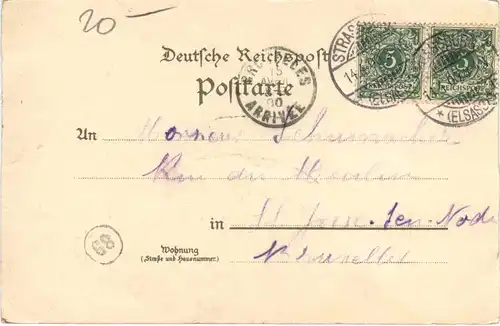 20-
Deutsche Reichspost
Postkarte
STRASSBURG
(ELSASS)
5
REICHSPOST
5
REICHSPOST
(ELSASS)
BRUXELLES
15
AVRIL
00
ARRIVÉE
An Monsieur Schumacher
Rue du Moulin
in St Josse-ten-Noode
Bruxelles
Wohnung
(Straße und Hausnummer)